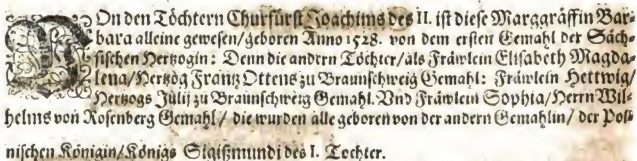 VOn den Töchtern Churfürst Joachims des II. ist diese Marggräffin Bar-
bara alleine gewesen/geboren Anno 1528. von dem ersten Gemahl der Säch-
sischen Hertzogin: Denn die andern Töchter/als Fräwlein Elisabeth Magda-
lena/Hertzog Frantz Ottens zu Braunschweig Gemahl: Fräwlein Hettwig/
Hertzogs Julij zu Braunschweig Gemahl. Vnd Fräwlein Sophia/Herrn Wil-
helms von Rosenberg Gemahl/ die wurden alle geboren von der andern Gemahlin/ der Pol-
nischen Königin/Königs Sigißmundi des I. Tochter.